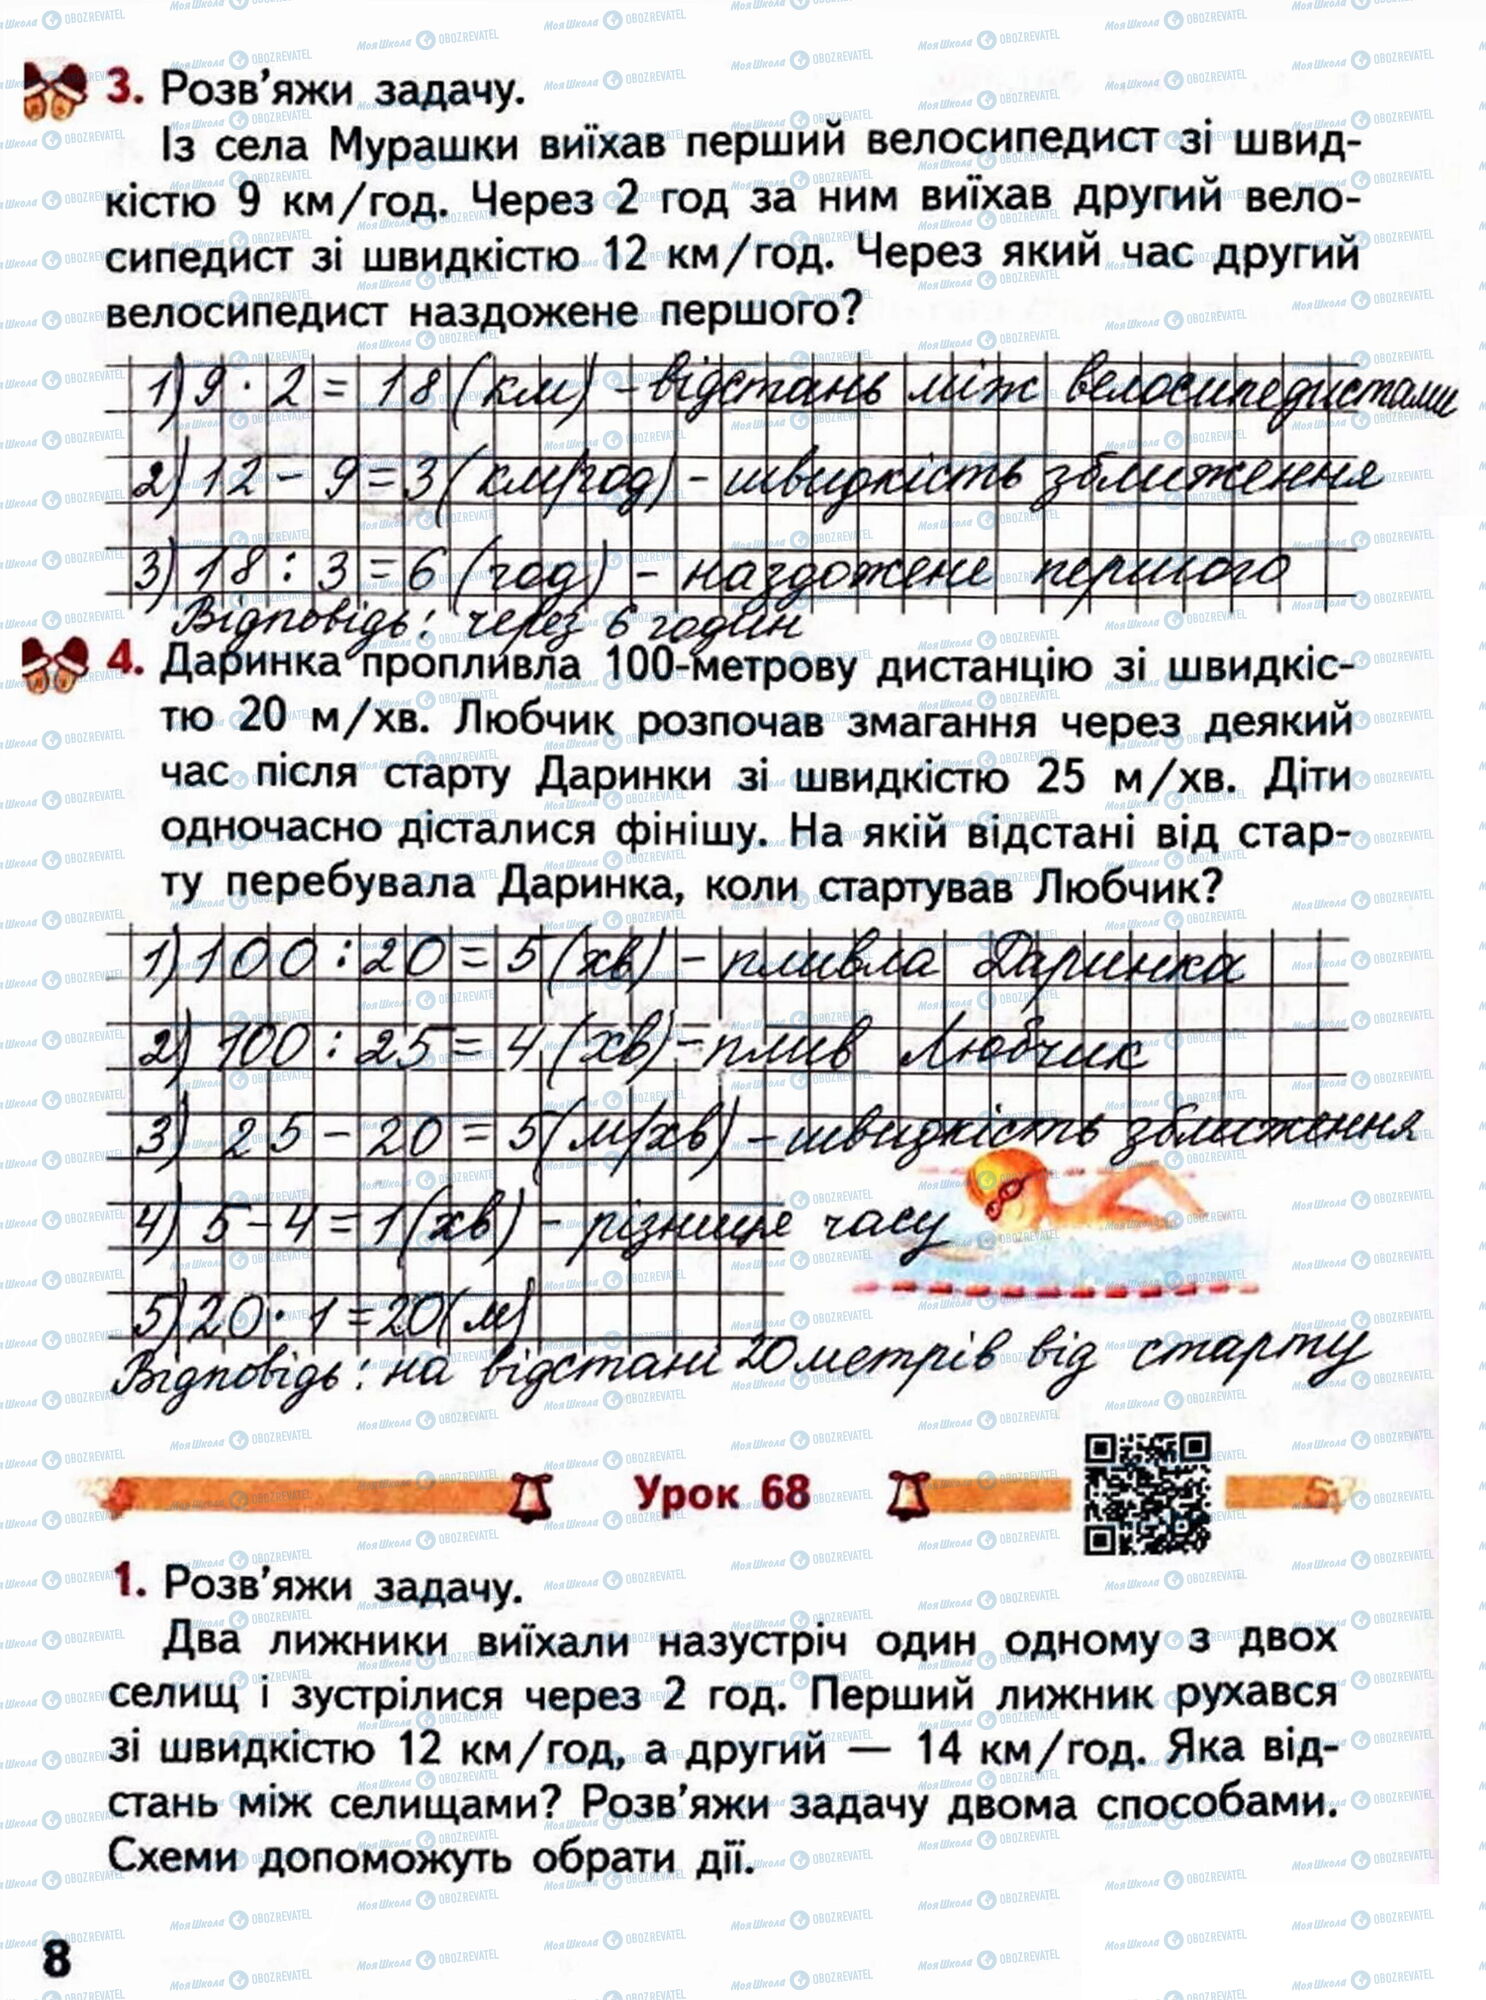 3. Розв'яжи задачу.
Із села Мурашки виїхав перший велосипедист зі швид-
кістю 9 км/год. Через 2 год за ним виїхав другий вело-
сипедист зі швидкістю 12 км/год. Через який час другий
велосипедист наздожене першого?
1) 9 · 2 = 18 (км) - відстань між велосипедистами
2) 12 - 9 = 3 (км/год) - швидкість зближення
3) 18 : 3 = 6 (год) - наздожене першого
Відповідь: через 6 годин
4. Даринка пропливла 100-метрову дистанцію зі швидкіс-
тю 20 м/хв. Любчик розпочав змагання через деякий
час після старту Даринки зі швидкістю 25 м/хв. Діти
одночасно дісталися фінішу. На якій відстані від стар-
ту перебувала Даринка, коли стартував Любчик?
1) 100 : 20 = 5 (хв) - пливла Даринка
2) 100 : 25 = 4 (хв) - плив Любчик
3) 25 - 20 = 5 (м/хв) - швидкість зближення
4) 5 - 4 = 1 (хв) - різниця часу
5) 20 · 1 = 20 (м)
Відповідь: на відстані 20 метрів від старту
Урок 68
1. Розв'яжи задачу.
Два лижники виїхали назустріч один одному з двох
селищ і зустрілися через 2 год. Перший лижник рухався
зі швидкістю 12 км/год, а другий — 14 км/год. Яка від-
стань між селищами? Розв'яжи задачу двома способами.
Схеми допоможуть обрати дії.
8
МояШкола OBOZREVATEL